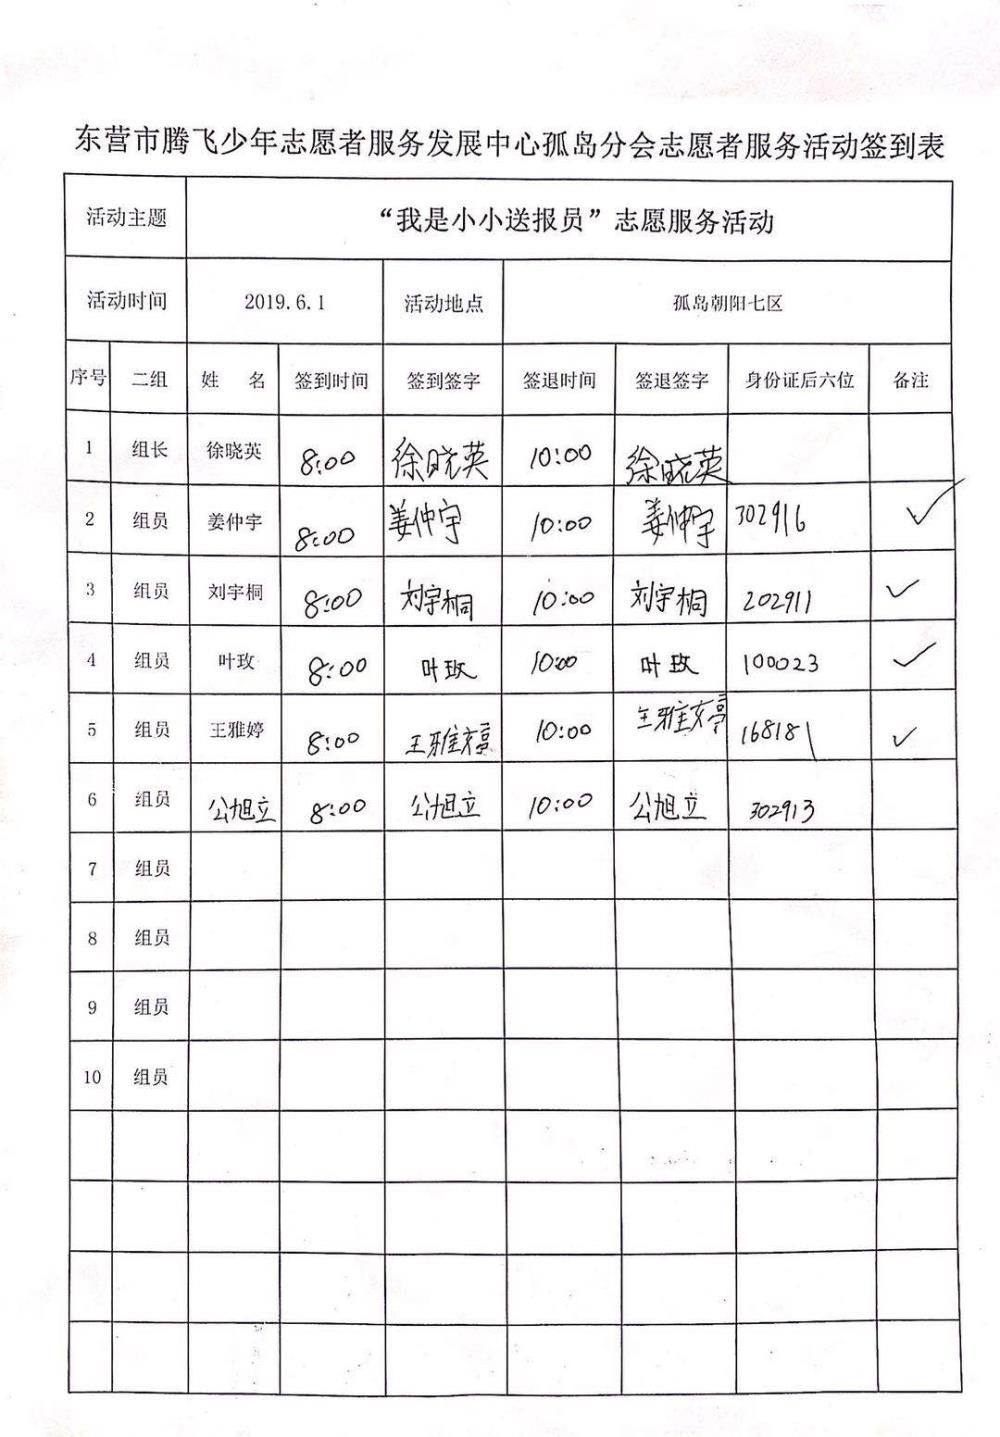 东营市腾飞少年志愿者服务发展中心孤岛分会志愿者服务活动签到表
活动主题 “我是小小送报员”志愿服务活动
活动时间 2019.6.1 活动地点 孤岛朝阳七区
序号 二组 姓 名 签到时间 签到签字 签退时间 签退签字 身份证后六位 备注
1 组长 徐晓英 8:00 徐晓英 10:00 徐晓英
2 组员 姜仲宇 8:00 姜仲宇 10:00 姜仲宇 302916 ✓
3 组员 刘宇桐 8:00 刘宇桐 10:00 刘宇桐 202911 ✓
4 组员 叶玫 8:00 叶玫 10:00 叶玫 100023 ✓
5 组员 王雅婷 8:00 王雅婷 10:00 王雅婷 168181 ✓
6 组员 公旭立 8:00 公旭立 10:00 公旭立 302913
7 组员
8 组员
9 组员
10 组员